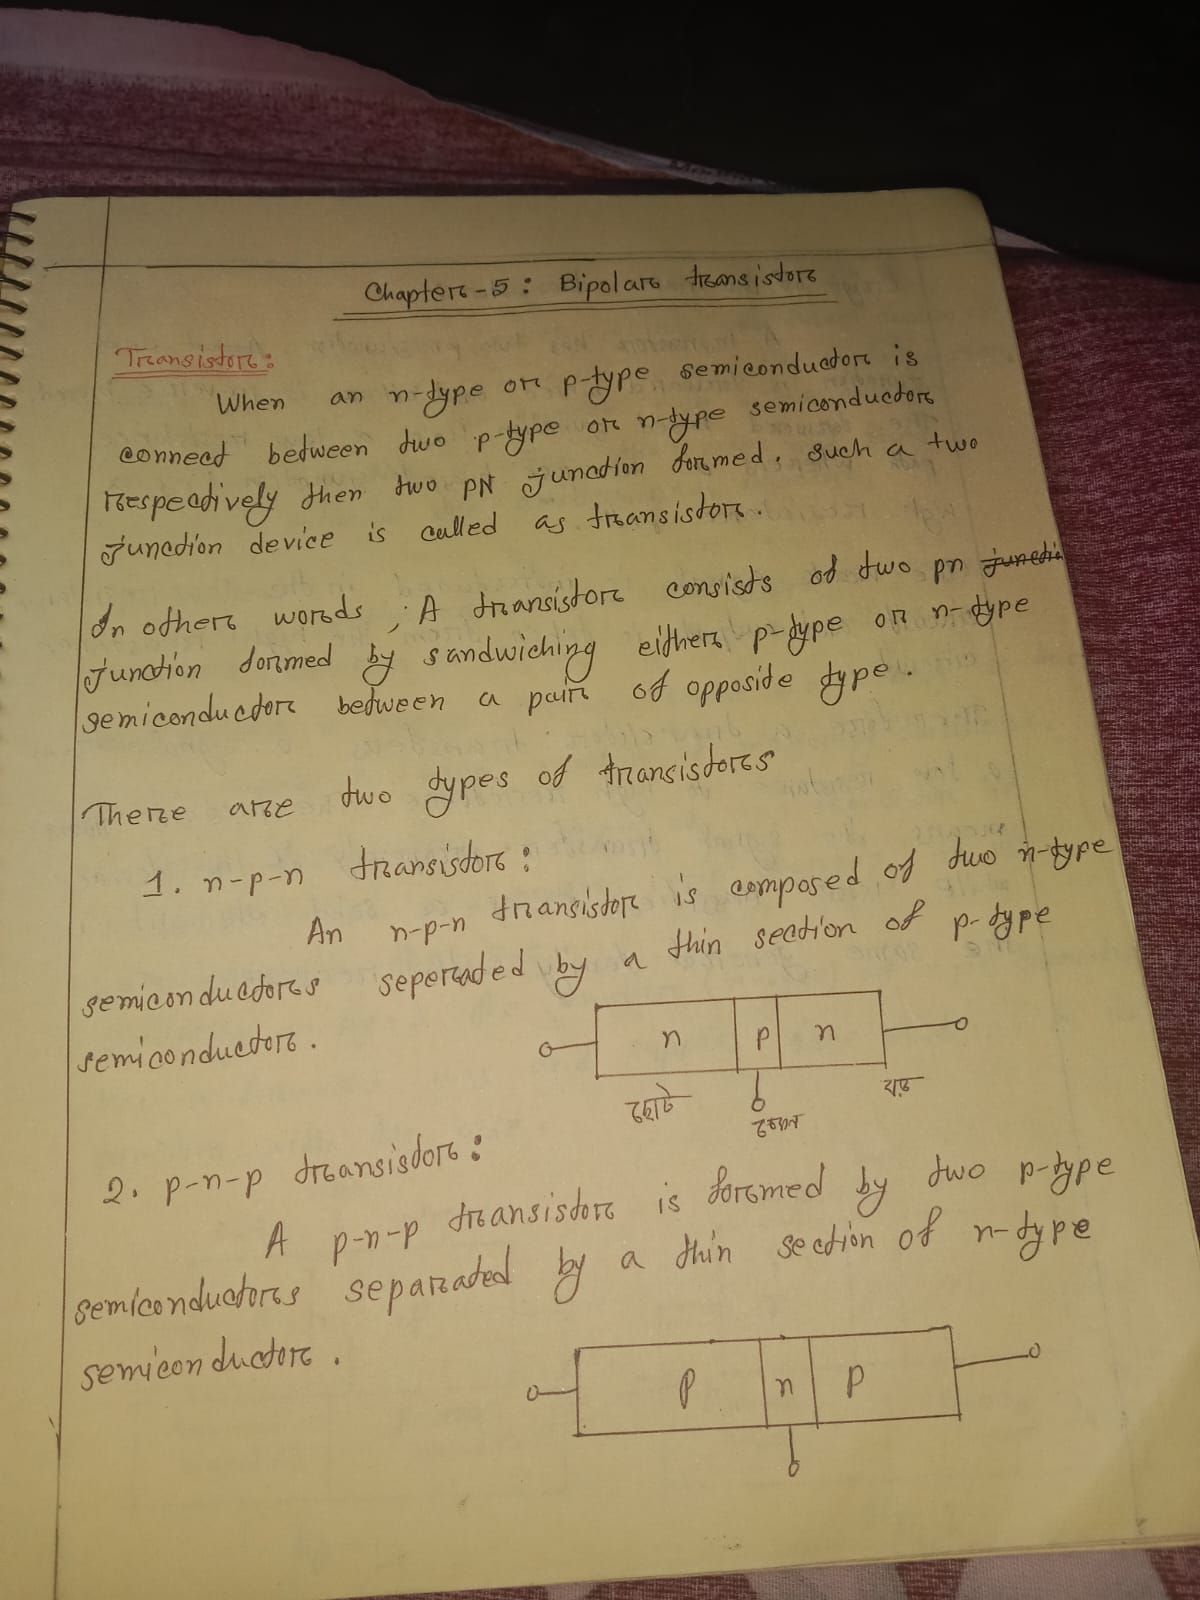 Chapter-5: Bipolar transistor
Transistor:
When an n-type or p-type semiconductor is
connect between two p-type or n-type semiconductor
respectively then two PN junction formed. Such a two
junction device is called as transistor.
In other words, A transistor consists of two pn junctio
junction formed by sandwiching either p-type or n-type
semiconductor between a pair of opposite type.
There are two types of transistors
1. n-p-n transistor:
An n-p-n transistor is composed of two n-type
semiconductors seperated by a thin section of p-type
semiconductor.
n p n
ছোট বড়
2. p-n-p transistor:
A p-n-p transistor is formed by two p-type
semiconductors separated by a thin section of n-type
semiconductor.
p n p